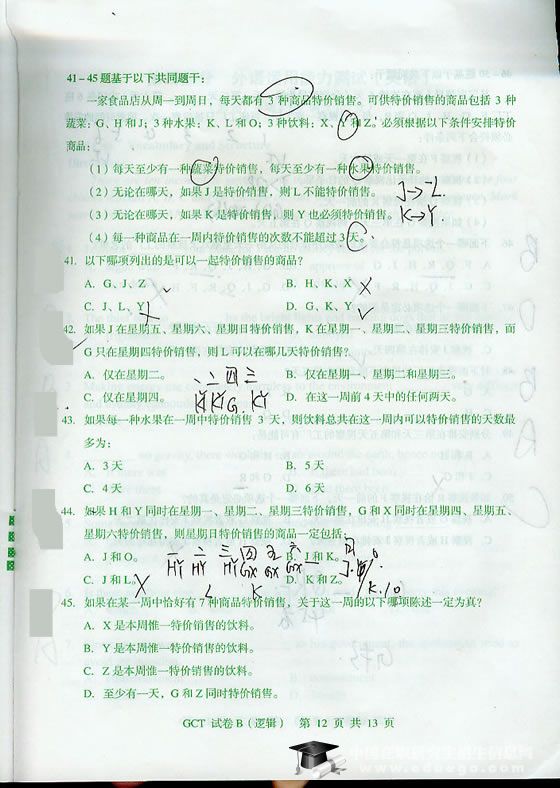 41-45题基于以下共同题干：
一家食品店从周一到周日，每天都有 3 种商品特价销售。可供特价销售的商品包括 3 种
蔬菜：G、H 和 J；3 种水果：K、L 和 O；3 种饮料：X、Y 和 Z。必须根据以下条件安排特价
商品：
（1）每天至少有一种蔬菜特价销售，每天至少有一种水果特价销售。
（2）无论在哪天，如果 J 是特价销售，则 L 不能特价销售。 J→¬L
（3）无论在哪天，如果 K 是特价销售，则 Y 也必须特价销售。 K→Y
（4）每一种商品在一周内特价销售的次数不能超过 3 天。
41. 以下哪项列出的是可以一起特价销售的商品？
A. G、J、Z B. H、K、X X
C. J、L、Y X D. G、K、Y √
42. 如果 J 在星期五、星期六、星期日特价销售，K 在星期一、星期二、星期三特价销售，而
G 只在星期四特价销售，则 L 可以在哪几天特价销售？
A. 仅在星期二。 B. 仅在星期一、星期二和星期三。
C. 仅在星期四。 D. 在这一周前 4 天中的任何两天。
43. 如果每一种水果在一周中特价销售 3 天，则饮料总共在这一周内可以特价销售的天数最
多为：
A. 3 天 B. 5 天
C. 4 天 D. 6 天
44. 如果 H 和 Y 同时在星期一、星期二、星期三特价销售，G 和 X 同时在星期四、星期五、
星期六特价销售，则星期日特价销售的商品一定包括：
A. J 和 O。 B. J 和 K。
一 二 三 四 五 六 日
HY HY HY GX GX GX
C. J 和 L。 X D. K 和 Z。
L K
45. 如果在某一周中恰好有 7 种商品特价销售，关于这一周的以下哪项陈述一定为真？
A. X 是本周惟一特价销售的饮料。
B. Y 是本周惟一特价销售的饮料。
C. Z 是本周惟一特价销售的饮料。
D. 至少有一天，G 和 Z 同时特价销售。
GCT 试卷 B（逻辑） 第 12 页 共 13 页